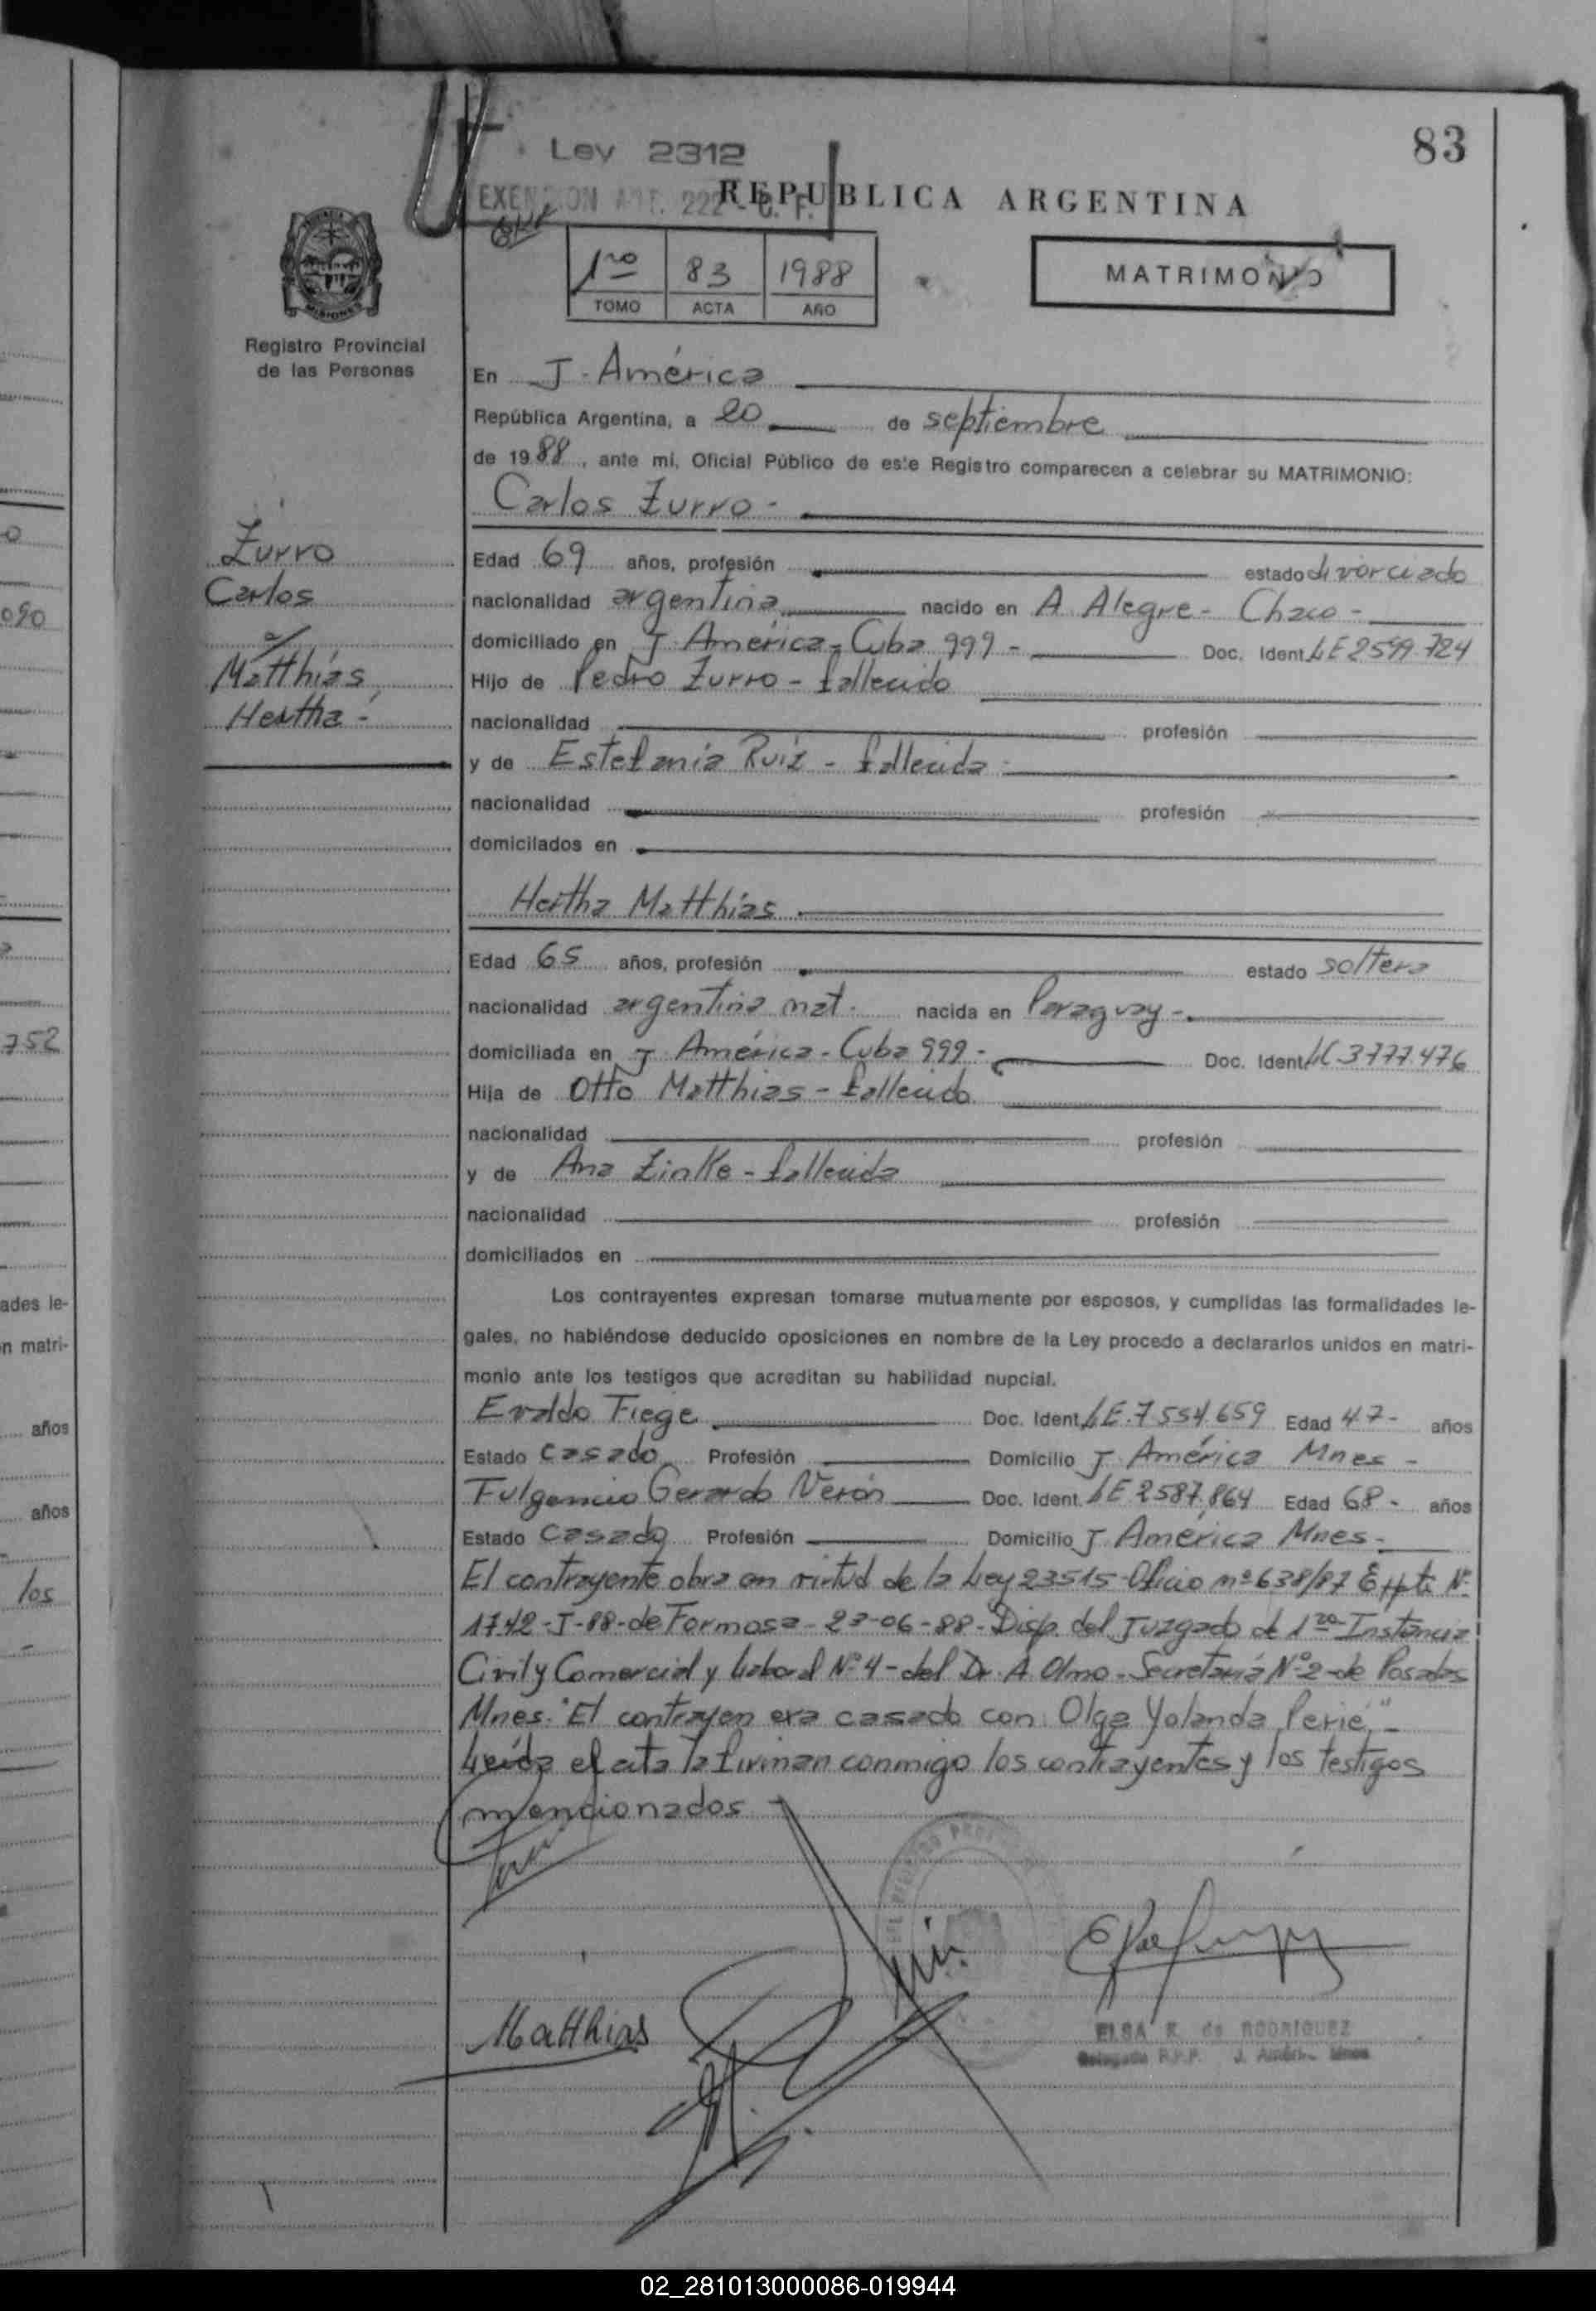 83
Ley 2312
EXENCION ART. 222 - C. F.
REPUBLICA ARGENTINA
1ro 83 1988
TOMO ACTA AÑO
MATRIMONIO
MISIONES
Registro Provincial
de las Personas
En J. América
República Argentina, a 20 de septiembre
de 1988, ante mi, Oficial Público de este Registro comparecen a celebrar su MATRIMONIO:
Carlos Zurro -
Zurro
Carlos
a/
Matthias,
Hertha -
Edad 69 años, profesión estado divorciado
nacionalidad argentina nacido en A. Alegre - Chaco -
domiciliado en J. América - Cuba 999 - Doc. Ident. LE 2599.724
Hijo de Pedro Zurro - fallecido
nacionalidad profesión
y de Estefania Ruiz - fallecida -
nacionalidad profesión
domicilados en
Hertha Matthias
Edad 65 años, profesión estado soltera
nacionalidad argentina nat. nacida en Paraguay -
domiciliada en J. América - Cuba 999 - Doc. Ident. LC.3777.476
Hija de Otto Matthias - fallecido
nacionalidad profesión
y de Ana Zinke - fallecida
nacionalidad profesión
domiciliados en
Los contrayentes expresan tomarse mutuamente por esposos, y cumplidas las formalidades le-
gales, no habiéndose deducido oposiciones en nombre de la Ley procedo a declararlos unidos en matri-
monio ante los testigos que acreditan su habilidad nupcial.
Evaldo Fiege Doc. Ident. LE.7554.659 Edad 47- años
Estado casado Profesión Domicilio J. América Mnes -
Fulgencio Gerardo Verón Doc. Ident. LE 2587.864 Edad 68- años
Estado casado Profesión Domicilio J. América Mnes-
El contrayente obra en virtud de la Ley 23515-Oficio nº 638/87 Expte Nº
1742-J-88-de Formosa - 23-06-88- Disp. del Juzgado de 1ra Instancia
Civil y Comercial y Laboral Nº 4- del Dr. A. Olmo - Secretaria Nº 2-de Posadas
Mnes. "El contrayen era casado con Olga Yolanda Perié" -
Leída el acta la firman conmigo los contrayentes y los testigos
mencionados -
Matthias
ELSA K. de RODRIGUEZ
Delegada R.P.P. J. América Mnes
090
752
ades le-
n matri-
años
años
los
02_281013000086-019944